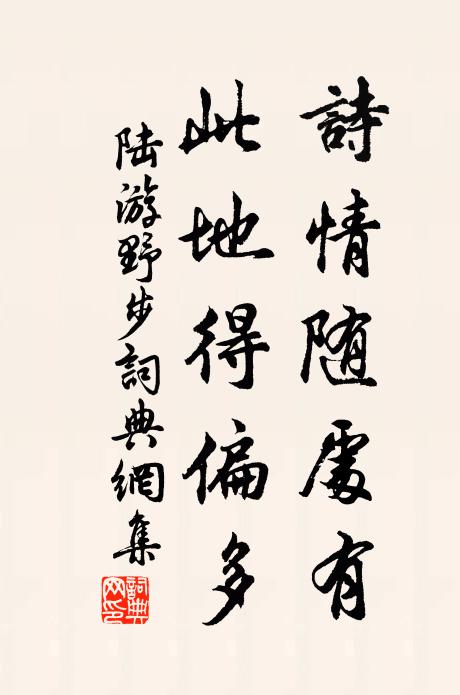 詩情随處有
此地得偏多
陆游野步詞典網集
詞典
网印